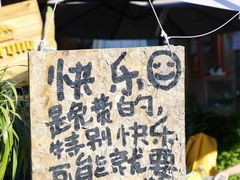 快乐
是免费的，
特别快乐
可能就要